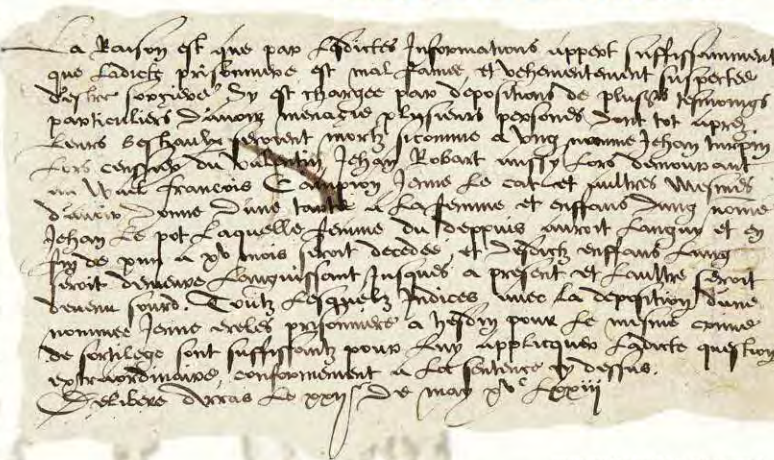 La Raison est que par Lesdictes Informations appert suffissamment
que Ladicte prisonniere est mal famee et vehementement suspectee
d'estre sorciere, Sy est chargee par depositions de plusrs tesmoings
particuliers d'avoir menacie plusieurs personnes dont tot apres
Leurs bestiaulx seroient mortz sicomme a ung nomme Jehan turpin
Lors censsier du Valentin, Jehan Robart aussy Lors demourant
au francois Campion Jenne Le Cat et aultres Mesmes
d'avoir donne d'une tarte a La femme et enffans dung nome
Jehan Le pot Laquelle femme du deppuis auroit Languy et en
fin de xiiii a xv mois seroit decedee, et desdictz enffans Lung
seroit demeure Languissant Jusques a present et Laultre seroit
devenu sourd. Toutz Lesquelz Indices avec La deposition d'une
nommee Jenne prisonniere a hesdin pour Le mesme crime
de sortilege sont suffissantz pour Luy applicquer Ladicte question
extraordinaire, conformement a La sentence cy dessus.
Delibere Arras Le xxii de may xvc Lxxiii